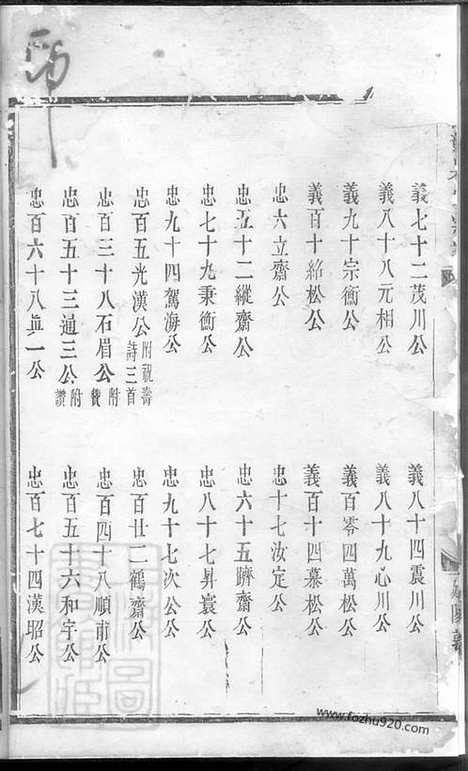 義七十二茂川公　義八十四震川公
義八十八元相公　義八十九心川公
義九十宗衡公　義百零四萬松公
義百十紹松公　義百十四慕松公
忠六立齋公　忠十七汝定公
忠五十二縱齋公　忠六十五躋齋公
忠七十九秉衡公　忠八十七昇寰公
忠九十四駕海公　忠九十七次公公
忠百五光漢公附祝壽詩三首　忠百廿二鶴齋公
忠百三十八石眉公附贊　忠百四十八順甫公
忠百五十三通三公附讚　忠百五十六和宇公
忠百六十八眞一公　忠百七十四漢昭公
www.fozhu920.com